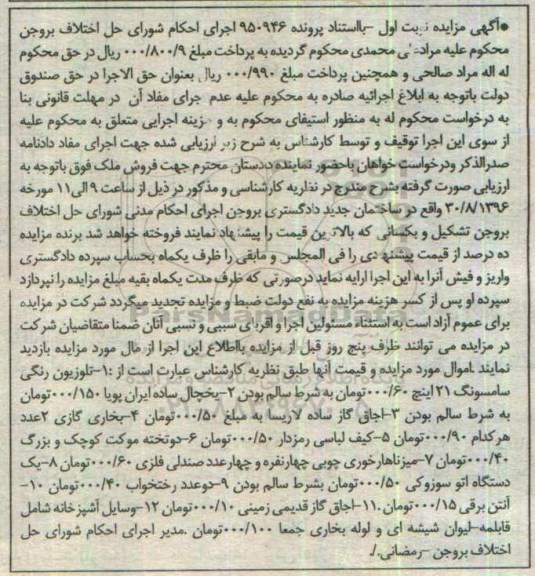 ●آگهی مزایده نوبت اول –بااستناد پرونده ۹۵۰۹۴۶ اجرای احکام شورای حل اختلاف بروجن
محکوم علیه محمدی محکوم گردیده به پرداخت مبلغ ۰۰۰/۸۰۰/۹ ریال در حق محکوم
له اله مراد صالحی و همچنین پرداخت مبلغ ۰۰۰/۹۹۰ ریال بعنوان حق الاجرا در حق صندوق
دولت باتوجه به ابلاغ اجرائیه صادره به محکوم علیه عدم اجرای مفاد آن در مهلت قانونی بنا
به درخواست محکوم له به منظور استیفای محکوم به و هزینه اجرایی متعلق به محکوم علیه
از سوی این اجرا توقیف و توسط کارشناس به شرح زیر ارزیابی شده جهت اجرای مفاد دادنامه
صدرالذکر ودرخواست خواهان باحضور نماینده دادستان محترم جهت فروش ملک فوق باتوجه به
ارزیابی صورت گرفته بشرح مندرج در نظریه کارشناسی و مذکور در ذیل از ساعت ۹ الی۱۱ مورخه
۳۰/۸/۱۳۹۶ واقع در ساختمان جدید دادگستری بروجن اجرای احکام مدنی شورای حل اختلاف
بروجن تشکیل و بکسانی که بالاترین قیمت را پیشنهاد نمایند فروخته خواهد شد برنده مزایده
ده درصد از قیمت پیشنهادی را فی المجلس و مابقی را ظرف یکماه بحساب سپرده دادگستری
واریز و فیش آنرا به این اجرا ارایه نماید درصورتی که ظرف مدت یکماه بقیه مبلغ مزایده را نپردازد
سپرده او پس از کسر هزینه مزایده به نفع دولت ضبط و مزایده تجدید میگردد شرکت در مزایده
برای عموم آزاد است به استثناء مسئولین اجرا و اقربای سببی و نسبی آنان ضمنا متقاضیان شرکت
در مزایده می توانند ظرف پنج روز قبل از مزایده بااطلاع این اجرا از مال مورد مزایده بازدید
نمایند .اموال مورد مزایده و قیمت آنها طبق نظریه کارشناس عبارت است از :۱–تلوزیون رنگی
سامسونگ ۲۱ اینچ ۰۰۰/۶۰تومان به شرط سالم بودن ۲–یخچال ساده ایران پویا ۰۰۰/۱۵۰تومان
به شرط سالم بودن ۳–اجاق گاز ساده لاریسا به مبلغ ۰۰۰/۵۰تومان ۴–بخاری گازی ۲عدد
هر کدام ۰۰۰/۹۰تومان ۵–کیف لباسی رمزدار ۰۰۰/۵۰تومان ۶–دوتخته موکت کوچک و بزرگ
۰۰۰/۴۰تومان ۷–میزناهارخوری چوبی چهارنفره و چهارعدد صندلی فلزی ۰۰۰/۶۰تومان ۸–یک
دستگاه اتو سوزوکی ۰۰۰/۵۰تومان بشرط سالم بودن ۹–دوعدد رختخواب ۰۰۰/۴۰تومان ۱۰–
آنتن برقی ۰۰۰/۱۵تومان .۱۱–اجاق گاز قدیمی زمینی ۰۰۰/۱۰تومان ۱۲–وسایل آشپزخانه شامل
قابلمه–لیوان شیشه ای و لوله بخاری جمعا ۰۰۰/۱۰۰تومان .مدیر اجرای احکام شورای حل
اختلاف بروجن –رمضانی./